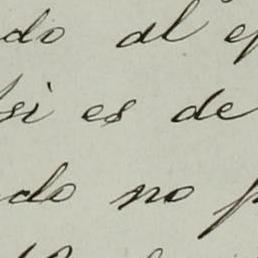 do al
si es de
do no